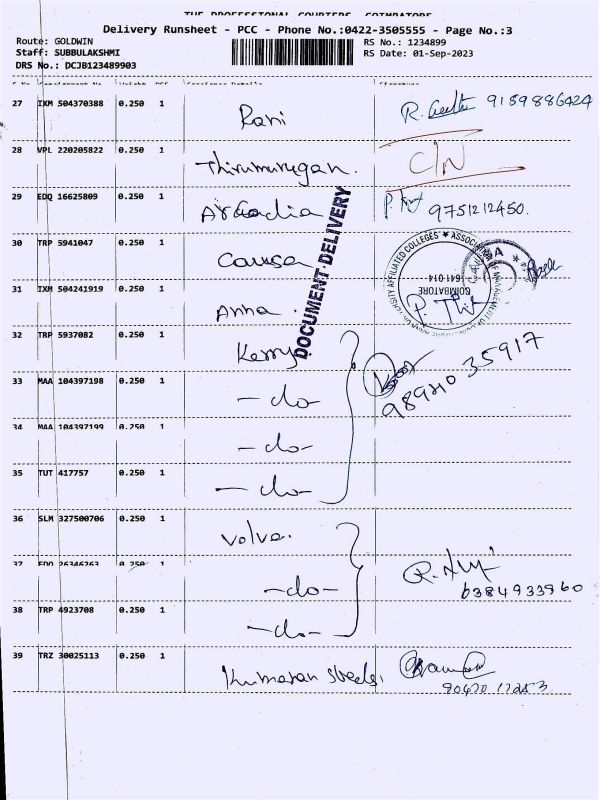 THE PROFESSIONAL COURIERS, COIMBATORE
Delivery Runsheet - PCC - Phone No.:0422-3505555 - Page No.:3
Route: GOLDWIN
RS No.: 1234899
Staff: SUBBULAKSHMI
RS Date: 01-Sep-2023
DRS No.: DCJB123489903
27 IXM 504370388 0.250 1 Rani 9159886424
28 VPL 220205822 0.250 1 Thirumurugan. C/N
29 EDQ 16625809 0.250 1 Arcadia 9751212450.
30 TRP 5941047 0.250 1
31 IXM 504241919 0.250 1 Anna.
DOCUMENT DELIVERY
COIMBATORE
641 014
32 TRP 5937082 0.250 1 Kerry
98940 35917
33 MAA 104397198 0.250 1 -do-
34 MAA 104397199 0.250 1 -do-
35 TUT 417757 0.250 1 -do-
36 SLM 327500706 0.250 1 Volva.
37 EDQ 26346263 0.250 1 -do- 6384933960
38 TRP 4923708 0.250 1 -do-
39 TRZ 30025113 0.250 1 Kumaran steels.